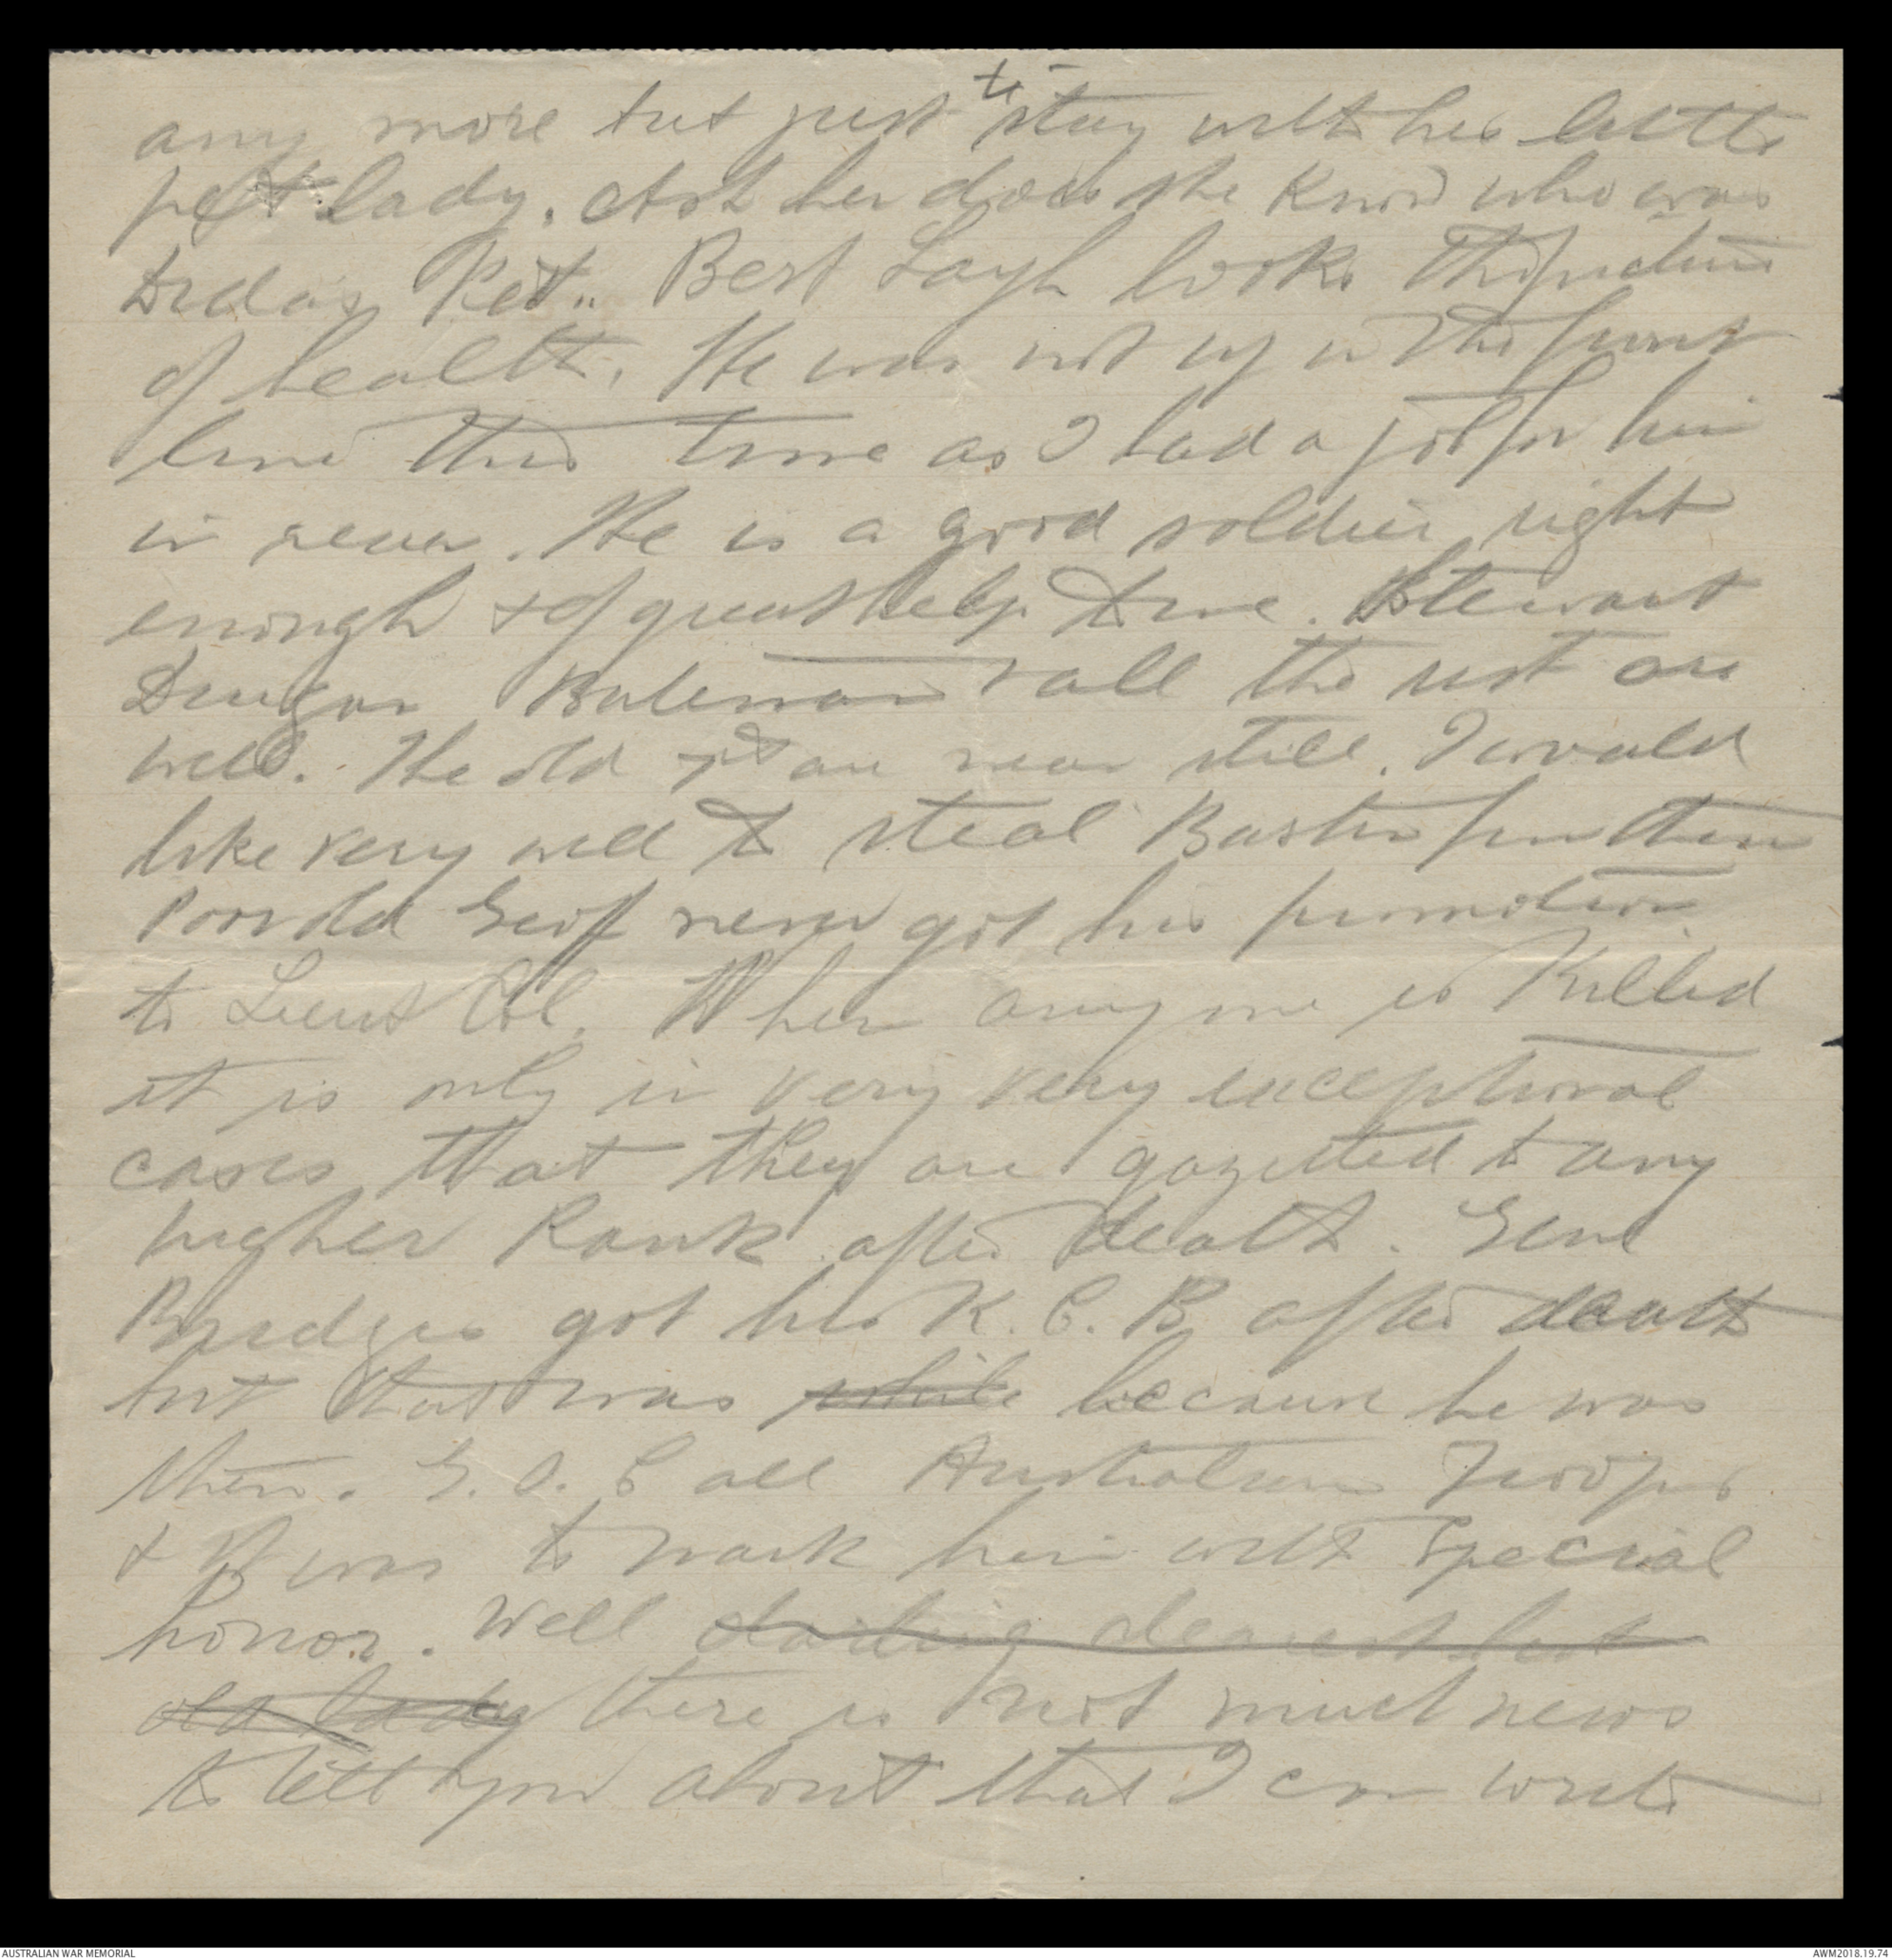 any more but just to stay with his little
pet lady. Ask her does she know who was
Dida's Pet.. Bert Layh looks the picture
of health. He was not up in the front
line this time as I had a job for him
in rear. He is a good soldier right
enough & of great help to me. Stewart
Dungan Bateman & all the rest are
well. The old 7th are near still. I would
like very well to steal Bastin from them
Poor old Geoff never got his promotion
to Lieut Col. When anyone is killed
it is only in very very exceptional
cases that they are gazetted to any
higher Rank after death. Genl
Bridges got his K.C.B after death
but that was while because he was
then. G.O.C all Australian Troops
& it was to mark him with special
honor. Well darling dearest best
old lady there is not much news
to tell you about that I can write
AUSTRALIAN WAR MEMORIAL
AWM2018.19.74